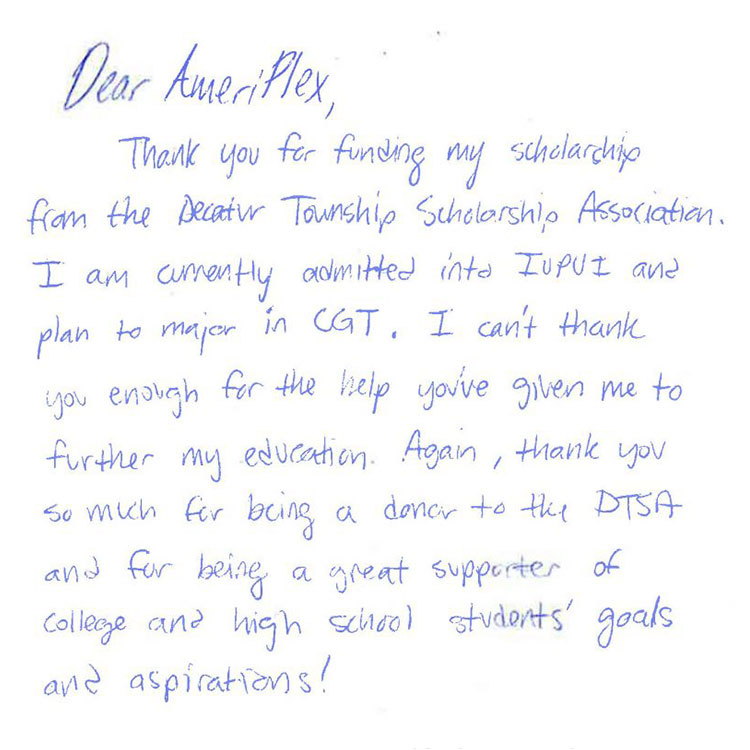 Dear AmeriPlex,
Thank you for funding my scholarship
from the Decatur Township Scholarship Association.
I am currently admitted into IUPUI and
plan to major in CGT. I can't thank
you enough for the help you've given me to
further my education. Again, thank you
so much for being a donor to the DTSA
and for being a great supporter of
college and high school students' goals
and aspirations!